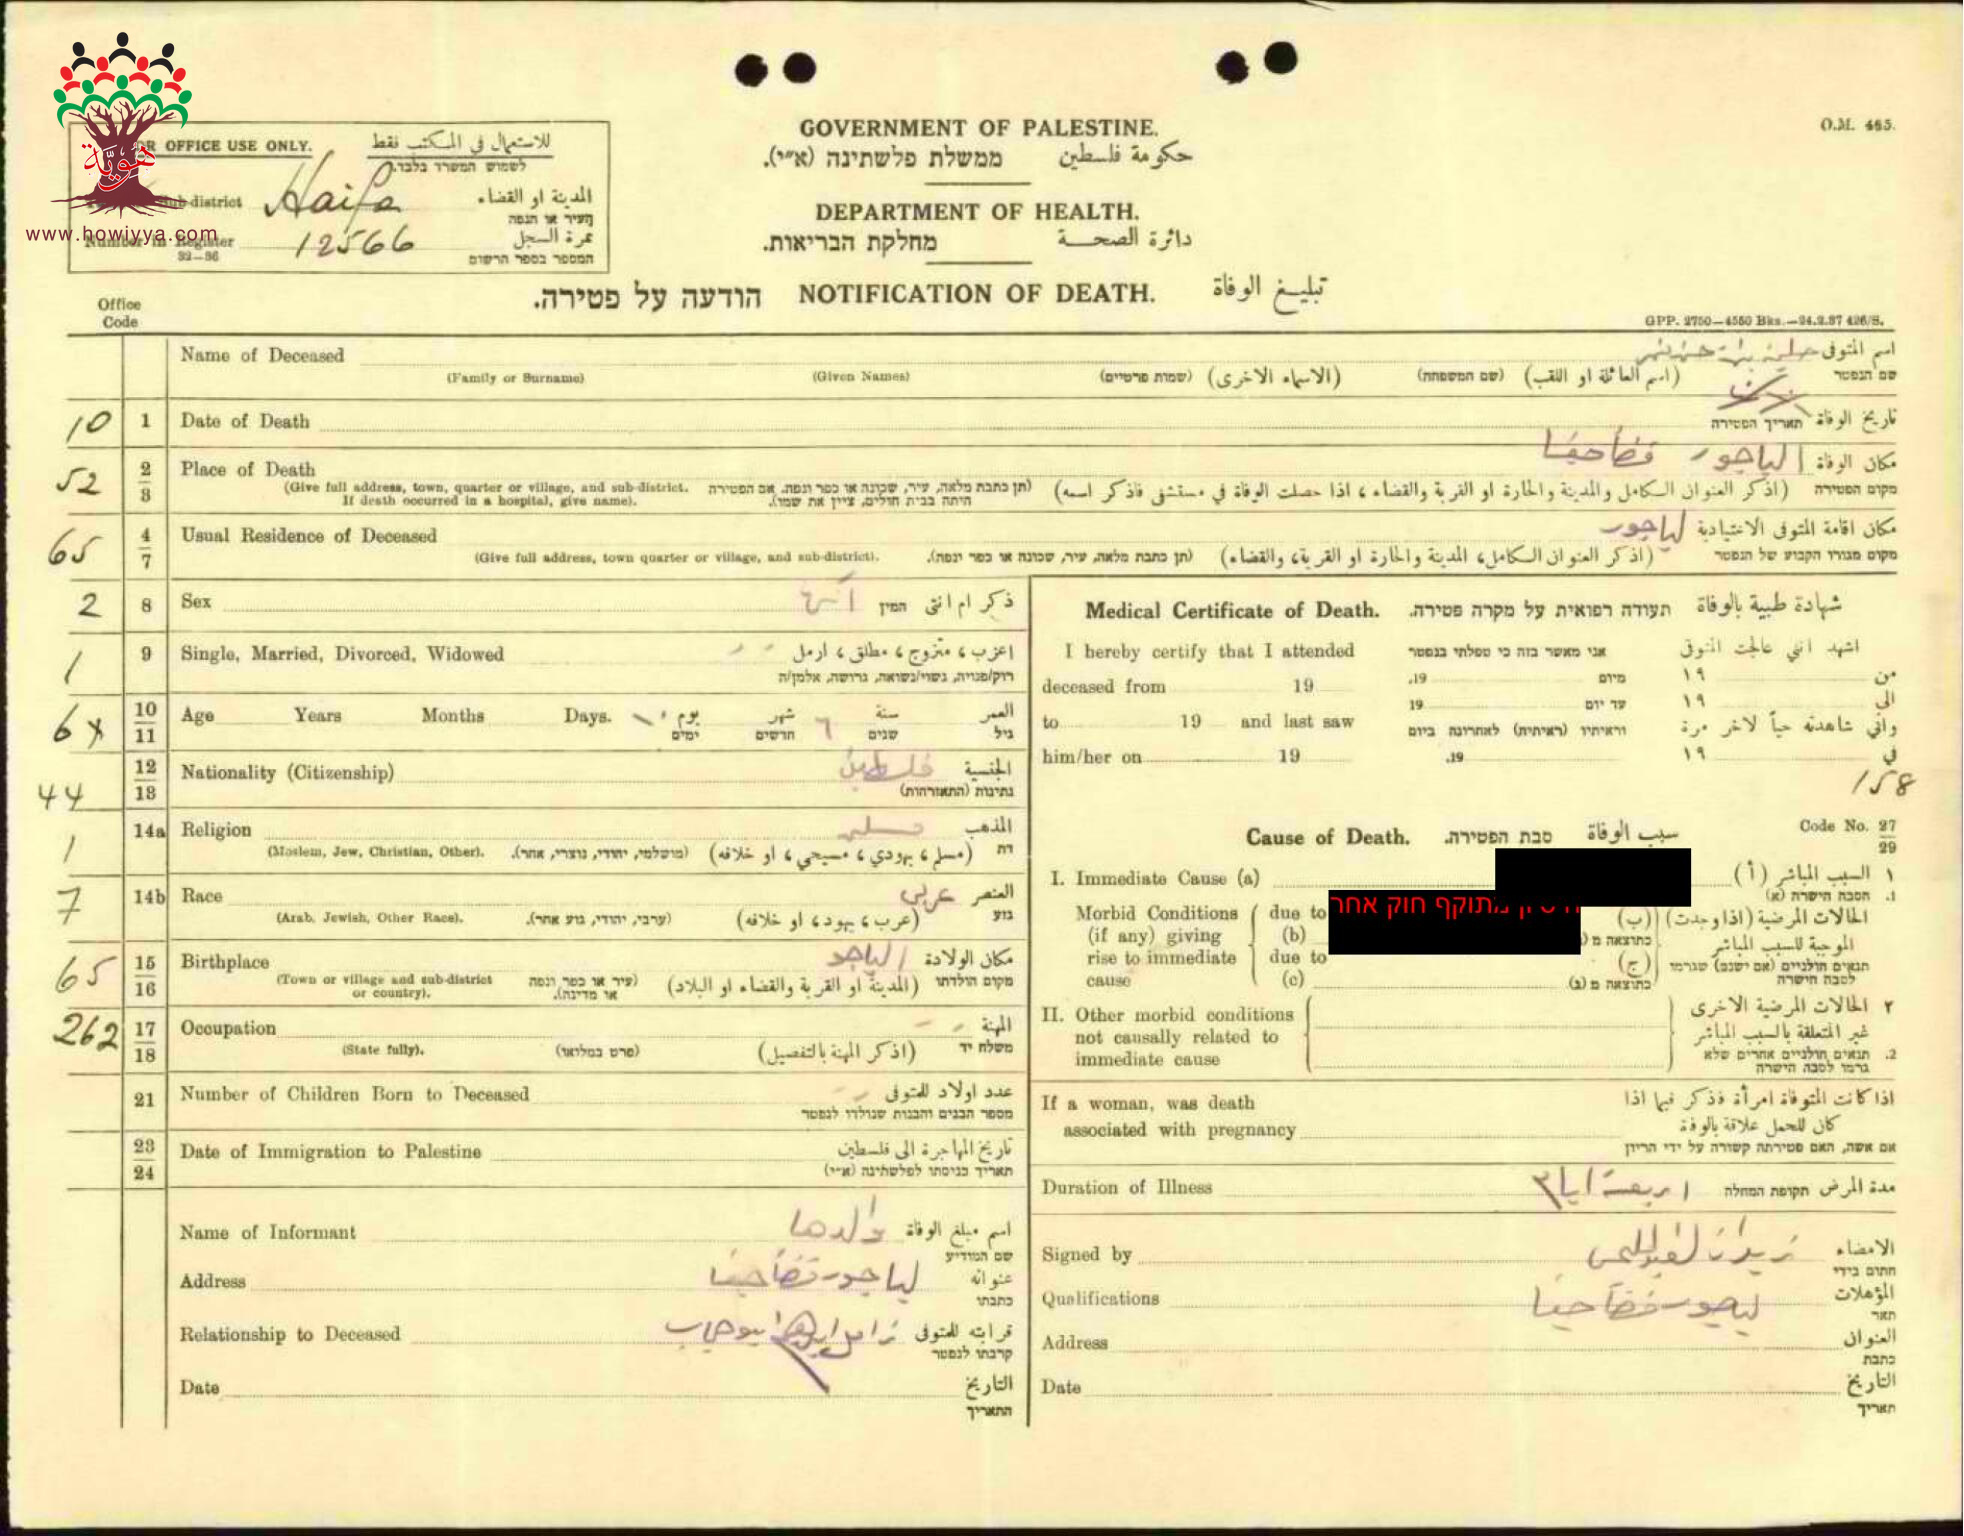 هوية
www.howiyya.com
O.M. 465.
FOR OFFICE USE ONLY. للاستعمال في المكتب فقط
לשמוש המשרד בלבד.
Sub-district Haifa المدينة او القضاء
העיר או הנפה
Number in Register 12566 نمرة السجل
32—36 המספר בספר הרשום
GOVERNMENT OF PALESTINE.
ממשלת פלשתינה (א״י). حكومة فلسطين
DEPARTMENT OF HEALTH.
מחלקת הבריאות. دائرة الصحة
הודעה על פטירה. NOTIFICATION OF DEATH. تبليغ الوفاة
Office
Code
GPP. 2750—4550 Bks.—24.2.37 426/S.
Name of Deceased اسم المتوفى
(Family or Surname) (Given Names) (שמות פרטיים) (الاسماء الاخرى) (שם המשפחה) (اسم العائلة او اللقب) שם הנפטר
10 1 Date of Death تاريخ الوفاة
תאריך הפטירה
52 2 3 Place of Death مكان الوفاة الياجور قضا حيفا
(Give full address, town, quarter or village, and sub-district. (תן כתבת מלאה, עיר, שכונה או כפר ונפה. אם הפטירה (اذكر العنوان الكامل والمدينة والحارة او القرية والقضاء ، اذا حصلت الوفاة في مستشفى فاذكر اسمه) מקום הפטירה
If death occurred in a hospital, give name). היתה בבית חולים, ציין את שמו).
65 4 7 Usual Residence of Deceased مكان اقامة المتوفى الاعتيادية لياجور
(Give full address, town quarter or village, and sub-district). (תן כתבת מלאה, עיר, שכונה או כפר ונפה). (اذكر العنوان الكامل، المدينة والحارة او القرية، والقضاء) מקום מגורו הקבוע של הנפטר
2 8 Sex המין ذكر ام انثى
1 9 Single, Married, Divorced, Widowed اعزب ، متزوج ، مطلق ، ارمل
רוק/פנויה, נשוי/נשואה, גרושה, אלמן/ה
10 11 Age Years Months Days. يوم شهر ٦ سنة العمر
ימים חדשים שנים גיל
44 12 13 Nationality (Citizenship) الجنسية فلسطين
נתינות (התאזרחות)
1 14a Religion المذهب مسلم
(Moslem, Jew, Christian, Other). (מושלמי, יהודי, נוצרי, אחר). (مسلم ، يهودي ، مسيحي ، او خلافه) דת
7 14b Race العنصر عربي
(Arab, Jewish, Other Race). (ערבי, יהודי, גזע אחר). (عرب ، يهود، او خلافه) גזע
65 15 16 Birthplace مكان الولادة
(Town or village and sub-district or country). (עיר או כפר ונפה או מדינה). (المدينة او القرية والقضاء او البلاد) מקום הולדתו
262 17 18 Occupation المهنة
(State fully). (פרט במלואו) (اذكر المهنة بالتفصيل) משלח יד
21 Number of Children Born to Deceased عدد اولاد للمتوفى
מספר הבנים והבנות שנולדו לנפטר
23 24 Date of Immigration to Palestine تاريخ المهاجرة الى فلسطين
תאריך כניסתו לפלשתינה (א״י)
Name of Informant اسم مبلغ الوفاة والدها
שם המודיע
Address عنوانه لياجور قضا حيفا
כתבתו
Relationship to Deceased قرابته للمتوفى
קרבתו לנפטר
Date التاريخ
התאריך
Medical Certificate of Death. תעודה רפואית על מקרה פטירה. شهادة طبية بالوفاة
I hereby certify that I attended אני מאשר בזה כי טפלתי בנפטר اشهد انني عالجت المتوفى
deceased from 19 מיום 19. من ١٩
to 19 and last saw עד יום 19 الى ١٩
וראיתיו (ראיתיה) לאחרונה ביום واني شاهدته حياً لآخر مرة
him/her on 19 19. في ١٩
158
Cause of Death. סבת הפטירה. سبب الوفاة Code No. 27 29
I. Immediate Cause (a) ١ السبب المباشر (أ)
1. הסבה הישרה (א)
מתוקף חוק אחר
Morbid Conditions due to الحالات المرضية (اذا وجدت) (ب)
(if any) giving (b) الموجبة للسبب المباشر
rise to immediate due to תנאים חולניים (אם ישנם) שגרמו (ج)
cause (c) לסבה הישרה
II. Other morbid conditions ٢ الحالات المرضية الاخرى
not causally related to غير المتعلقة بالسبب المباشر
immediate cause 2. תנאים חולניים אחרים שלא
גרמו לסבה הישרה
If a woman, was death اذا كانت المتوفاة امرأة فذكر فيما اذا
associated with pregnancy كان للحمل علاقة بالوفاة
אם אשה, האם פטירתה קשורה על ידי הריון
Duration of Illness תקופת המחלה مدة المرض اربعة ايام
Signed by الامضاء
חתום בידי
Qualifications المؤهلات
תאר
Address العنوان
כתבת
Date التاريخ
תאריך